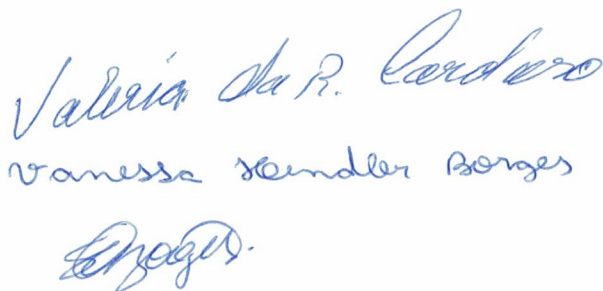 Valéria da R. Cardoso
Vanessa Hendler Borges